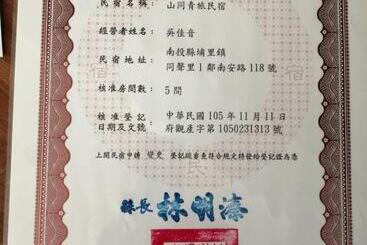 民宿名稱: 山同青旅民宿
經營者姓名: 吳佳音
民宿地址: 南投縣埔里鎮
同聲里1鄰南安路118號
核准房間數: 5間
核准登記 中華民國105年11月11日
日期及文號: 府觀產字第1050231313號
上開民宿申請 變更 登記經審查符合規定特發給登記證為憑
縣長 林明溱
宿
宿
民